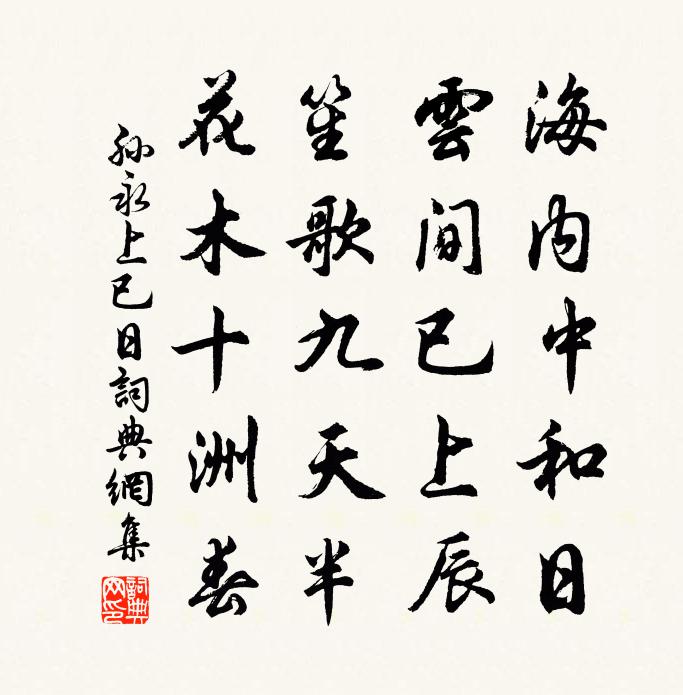 海内中和日
雲間已上辰
笙歌九天半
花木十洲春
孙永上巳日詞典網集
詞典網印